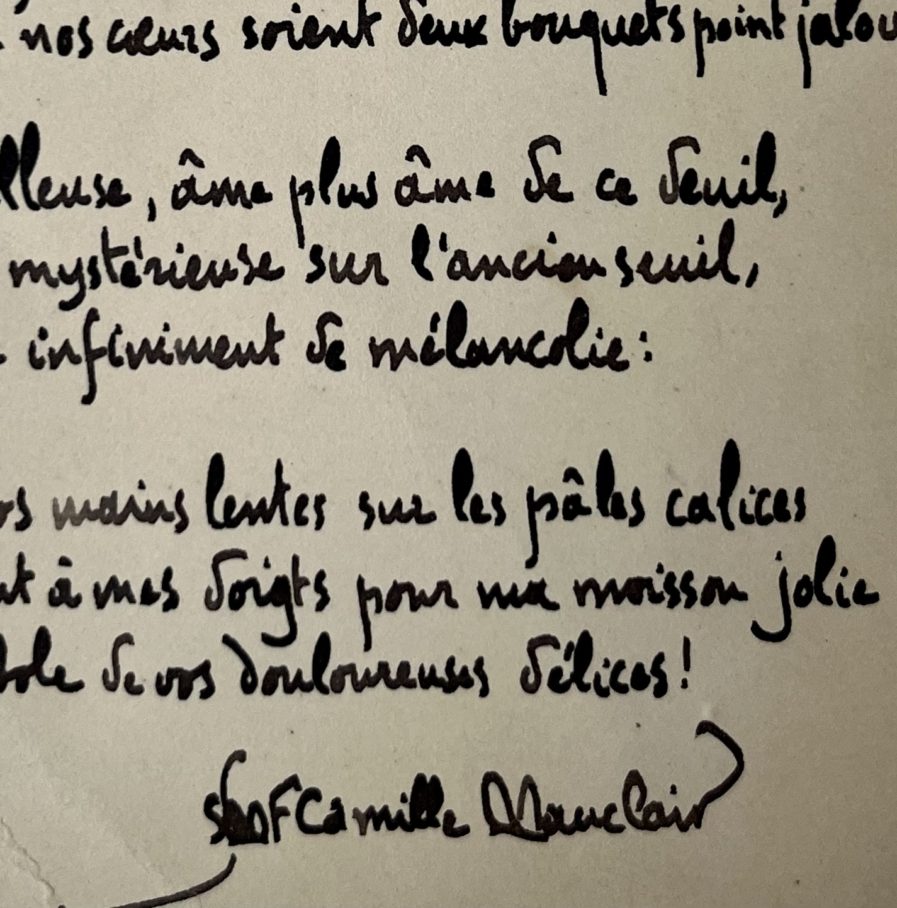 nos cœurs soient deux bouquets point jalou
lleuse, âme plus âme de ce deuil,
mystérieuse sur l'ancien seuil,
infiniment de mélancolie:
os mains lentes sur les pâles calices
nt à mes doigts pour ma moisson jolie
bole de vos douloureuses délices!
Camille Mauclair